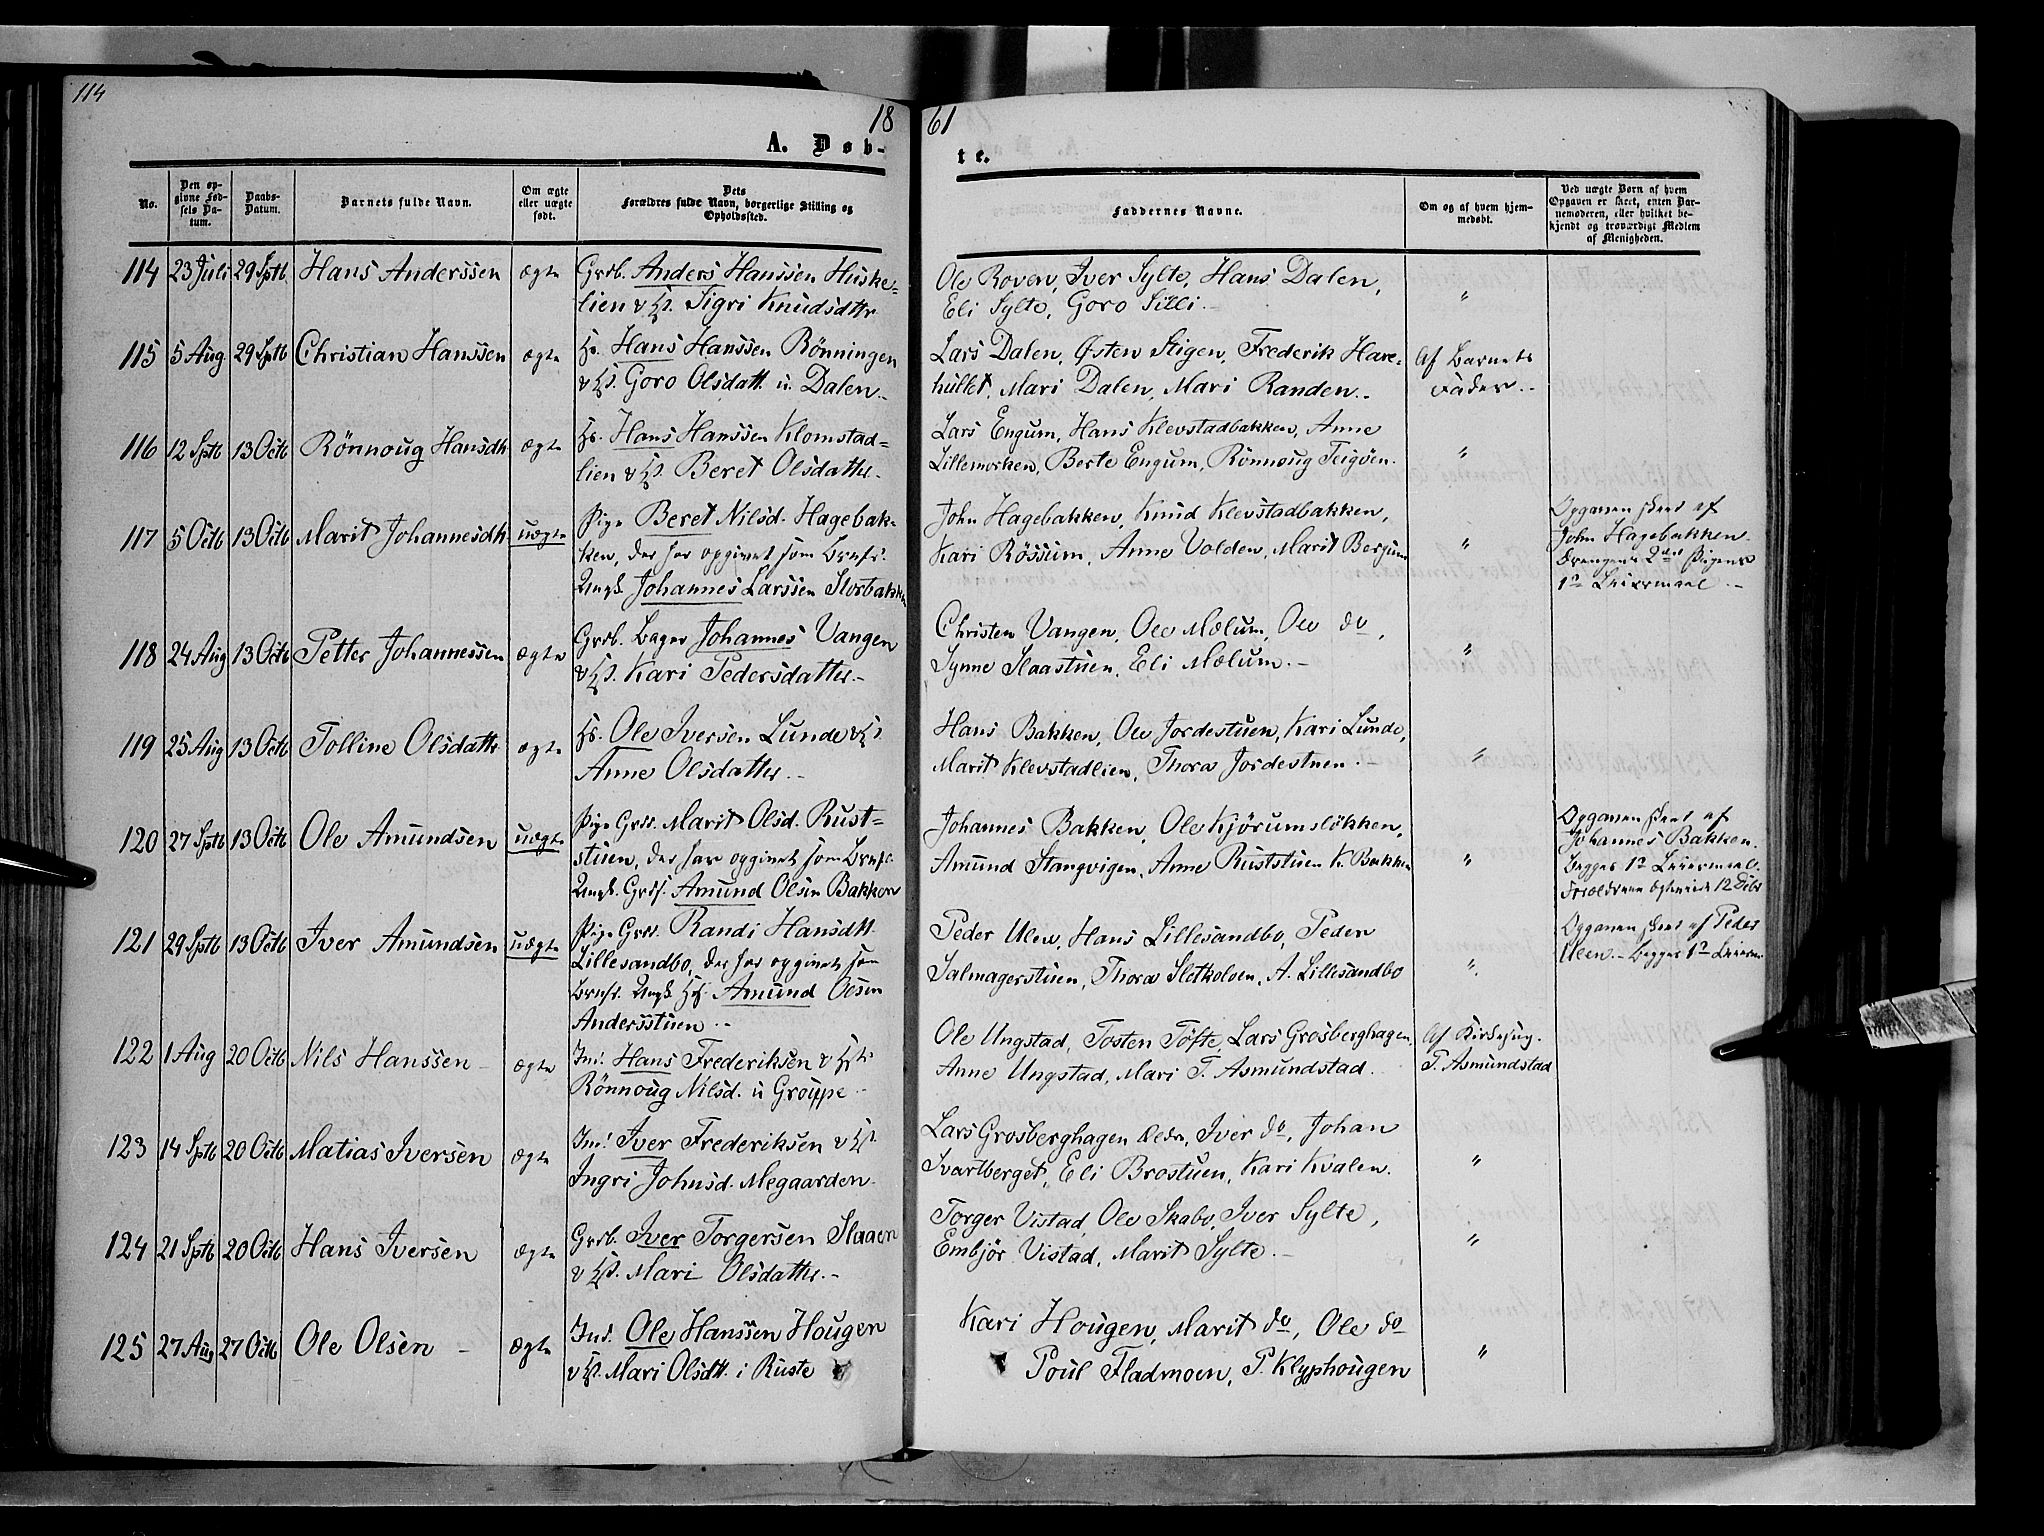 114
18
61
A. Døb-
te.
No.
Den op-
givne Fød-
sels Da-
tum.
Daabs-
Datum.
Barnets fulde Navn.
Om ægte
eller uægte
født.
Dets
Forældres fulde Navn, borgerlige Stilling og
Opholdssted.
Faddernes Navne.
Om og af hvem hjem-
medøbt.
Ved uægte Børn af hvem
Opgaven er skeet, enten Bar-
nemoderen, eller hvilket be-
kjendt og troværdigt Medlem
af Menigheden.
114 23 Juli 29 Sptb. Hans Anderssen ægte Grdb. Anders Hanssen Huske=
lien & Hst. Sigri Knudsdattr.
Ole Roven, Iver Sylte, Hans Dalen,
Eli Sylte, Goro Silli. "
115 5 Aug 29 Sptb Christian Hanssen ægte Hs. Hans Hanssen Rönningen
& Hst. Goro Olsdatt. u. Dalen.
Lars Dalen, Østen Stigen, Frederik Hare=
hullet, Mari Dalen, Mari Randen. Af Barnets
Fader.
116 12 Sptb 13 Octb Rönnoug Hansdtr ægte Hs. Hans Hanssen Klomstad=
lien & Hst. Beret Olsdatter.
Lars Engum, Hans Klevstadbakken, Anne
Lillemorken, Berte Engum, Rönnoug Teigöen. "
117 5 Octb 13 Octb Marit Johannesdtr uægte Pige Beret Nilsd. Hagebak=
ken, der har opgivet som Brnfr.
Ungk. Johannes Larssen Storbakken
John Hagebakken, Knud Klevstadbakken,
Kari Rössum, Anne Volden, Marit Bergum "
Opgaven skeet af
John Hagebakken.
Drengens 2det Pigens
1ste Leiermaal.
118 24 Aug 13 Octb Petter Johannessen ægte Grdb. Bager Johannes Vangen
& Hst. Kari Pedersdatter.
Christen Vangen, Ole Mælum, Ole do,
Synne Slaastuen, Eli Mælum. "
119 25 Aug 13 Octb Tolline Olsdattr ægte Hs. Ole Iversen Lunde & Hst
Anne Olsdatter.
Hans Bakken, Ole Jordestuen, Kari Lunde,
Marit Klevstadlien, Thora Jordestuen. "
120 27 Sptb 13 Octb Ole Amundsen uægte Pige Grdd. Marit Olsd. Rust=
stuen, der har opgivet som Brnfr.
Ungk. Grds. Amund Olsen Bakken
Johannes Bakken, Ole Kjörumslökken,
Amund Stangvigen, Anne Ruststuen K. Bakken "
Opgaven skeet af
Johannes Bakken.
Begges 1ste Leiermaal.
Forældrene Ægteviede 12 Debr
121 29 Sptb 13 Octb Iver Amundsen uægte Pige Grdd. Randi Hansdtt.
Lillesandbo, der har opgivet som
Brnfr. Ungk. Hs. Amund Olsen
Andersstuen.
Peder Ulen, Hans Lillesandbo, Peder
Salmagerstuen, Thora Sletholen, A. Lillesandbo "
Opgaven skeet af Peder
Uleen. - Begges 1ste Leierm.
122 1 Aug 20 Octb Nils Hanssen ægte Ind. Hans Frederiksen & Hst.
Rönnoug Nilsd. u Grouppe
Ole Ungstad, Tosten Töfte, Lars Grosberghagen,
Anne Ungstad, Mari T. Asmundstad.
Af Kirkesng.
T. Asmundstad
123 14 Sptb 20 Octb Matias Iversen ægte Ind. Iver Frederiksen & Hst.
Ingri Johnsd. Megaarden.
Lars Grosberghagen Ældr, Iver do, Johan
Svartberget, Eli Brostuen, Kari Kvalen. "
124 21 Sptb 20 Octb Hans Iversen ægte Grdb. Iver Torgersen Slaaen
& Hst. Mari Olsdatter.
Torger Vistad, Ole Skabo, Iver Sylte,
Embjör Vistad, Marit Sylte. "
125 27 Aug 27 Octb Ole Olsen ægte Ind. Ole Hanssen Hougen
& Hst. Mari Olsdtt. i Ruste
Kari Hougen, Marit do, Ole do
Poul Fladmoen, P. Klyphougen "